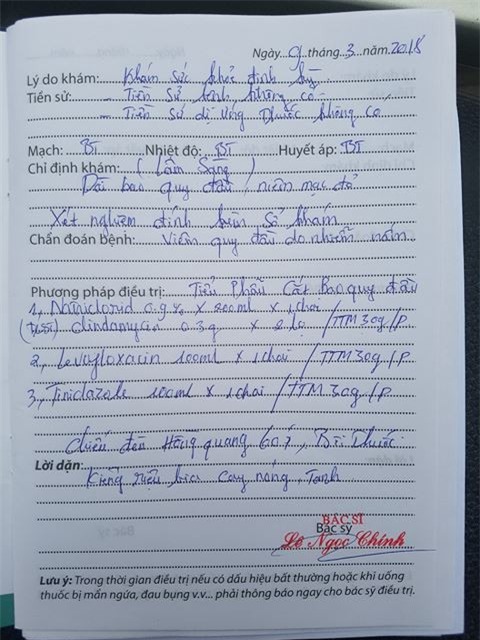 Ngày 9 tháng 3 năm 2018
Lý do khám: Khám sức khỏe định kỳ
Tiền sử: - Tiền sử bệnh không có
- Tiền sử dị ứng thuốc không có
Mạch: BT Nhiệt độ: BT Huyết áp: BT
Chỉ định khám: (Lâm sàng)
Dài bao quy đầu, niêm mạc đỏ
Xét nghiệm đính kèm sổ khám
Chẩn đoán bệnh: Viêm quy đầu do nhiễm nấm
Phương pháp điều trị: Tiểu Phẫu Cắt Bao quy đầu
1, Natriclorid 0.9% x 200ml x 1 chai
clindamycin 0.3g x 2 lọ / TTM 30g/p.
2, Levofloxacin 100ml x 1 chai / TTM 30g/p.
3, Tinidazole 100ml x 1 chai / TTM 30g/p.
Chiếu đèn Hồng quang 60', Bôi thuốc.
Lời dặn: Kiêng rượu bia, cay nóng, Tanh
BÁC SĨ
Bác sỹ
Lê Ngọc Chính
Lưu ý: Trong thời gian điều trị nếu có dấu hiệu bất thường hoặc khi uống
thuốc bị mẩn ngứa, đau bụng v.v... phải thông báo ngay cho bác sỹ điều trị.